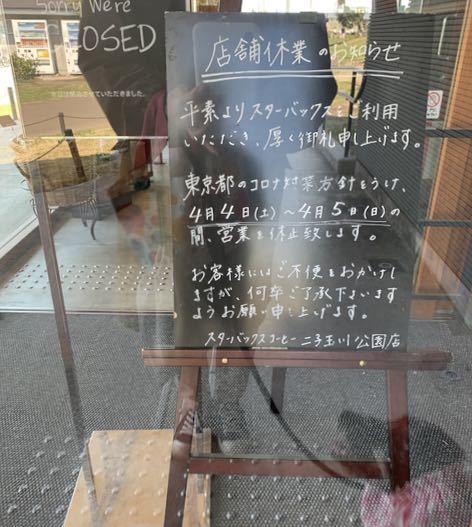 Sorry We're
CLOSED
本日は閉店させていただきました。
店舗休業のお知らせ
平素よりスターバックスをご利用
いただき、厚く御礼申し上げます。
東京都のコロナ対策方針をうけ、
4月4日(土)〜4月5日(日)の
間、営業を休止致します。
お客様にはご不便をおかけし
ますが、何卒ご了承下さいます
ようお願い申し上げます。
スターバックスコーヒー 二子玉川公園店